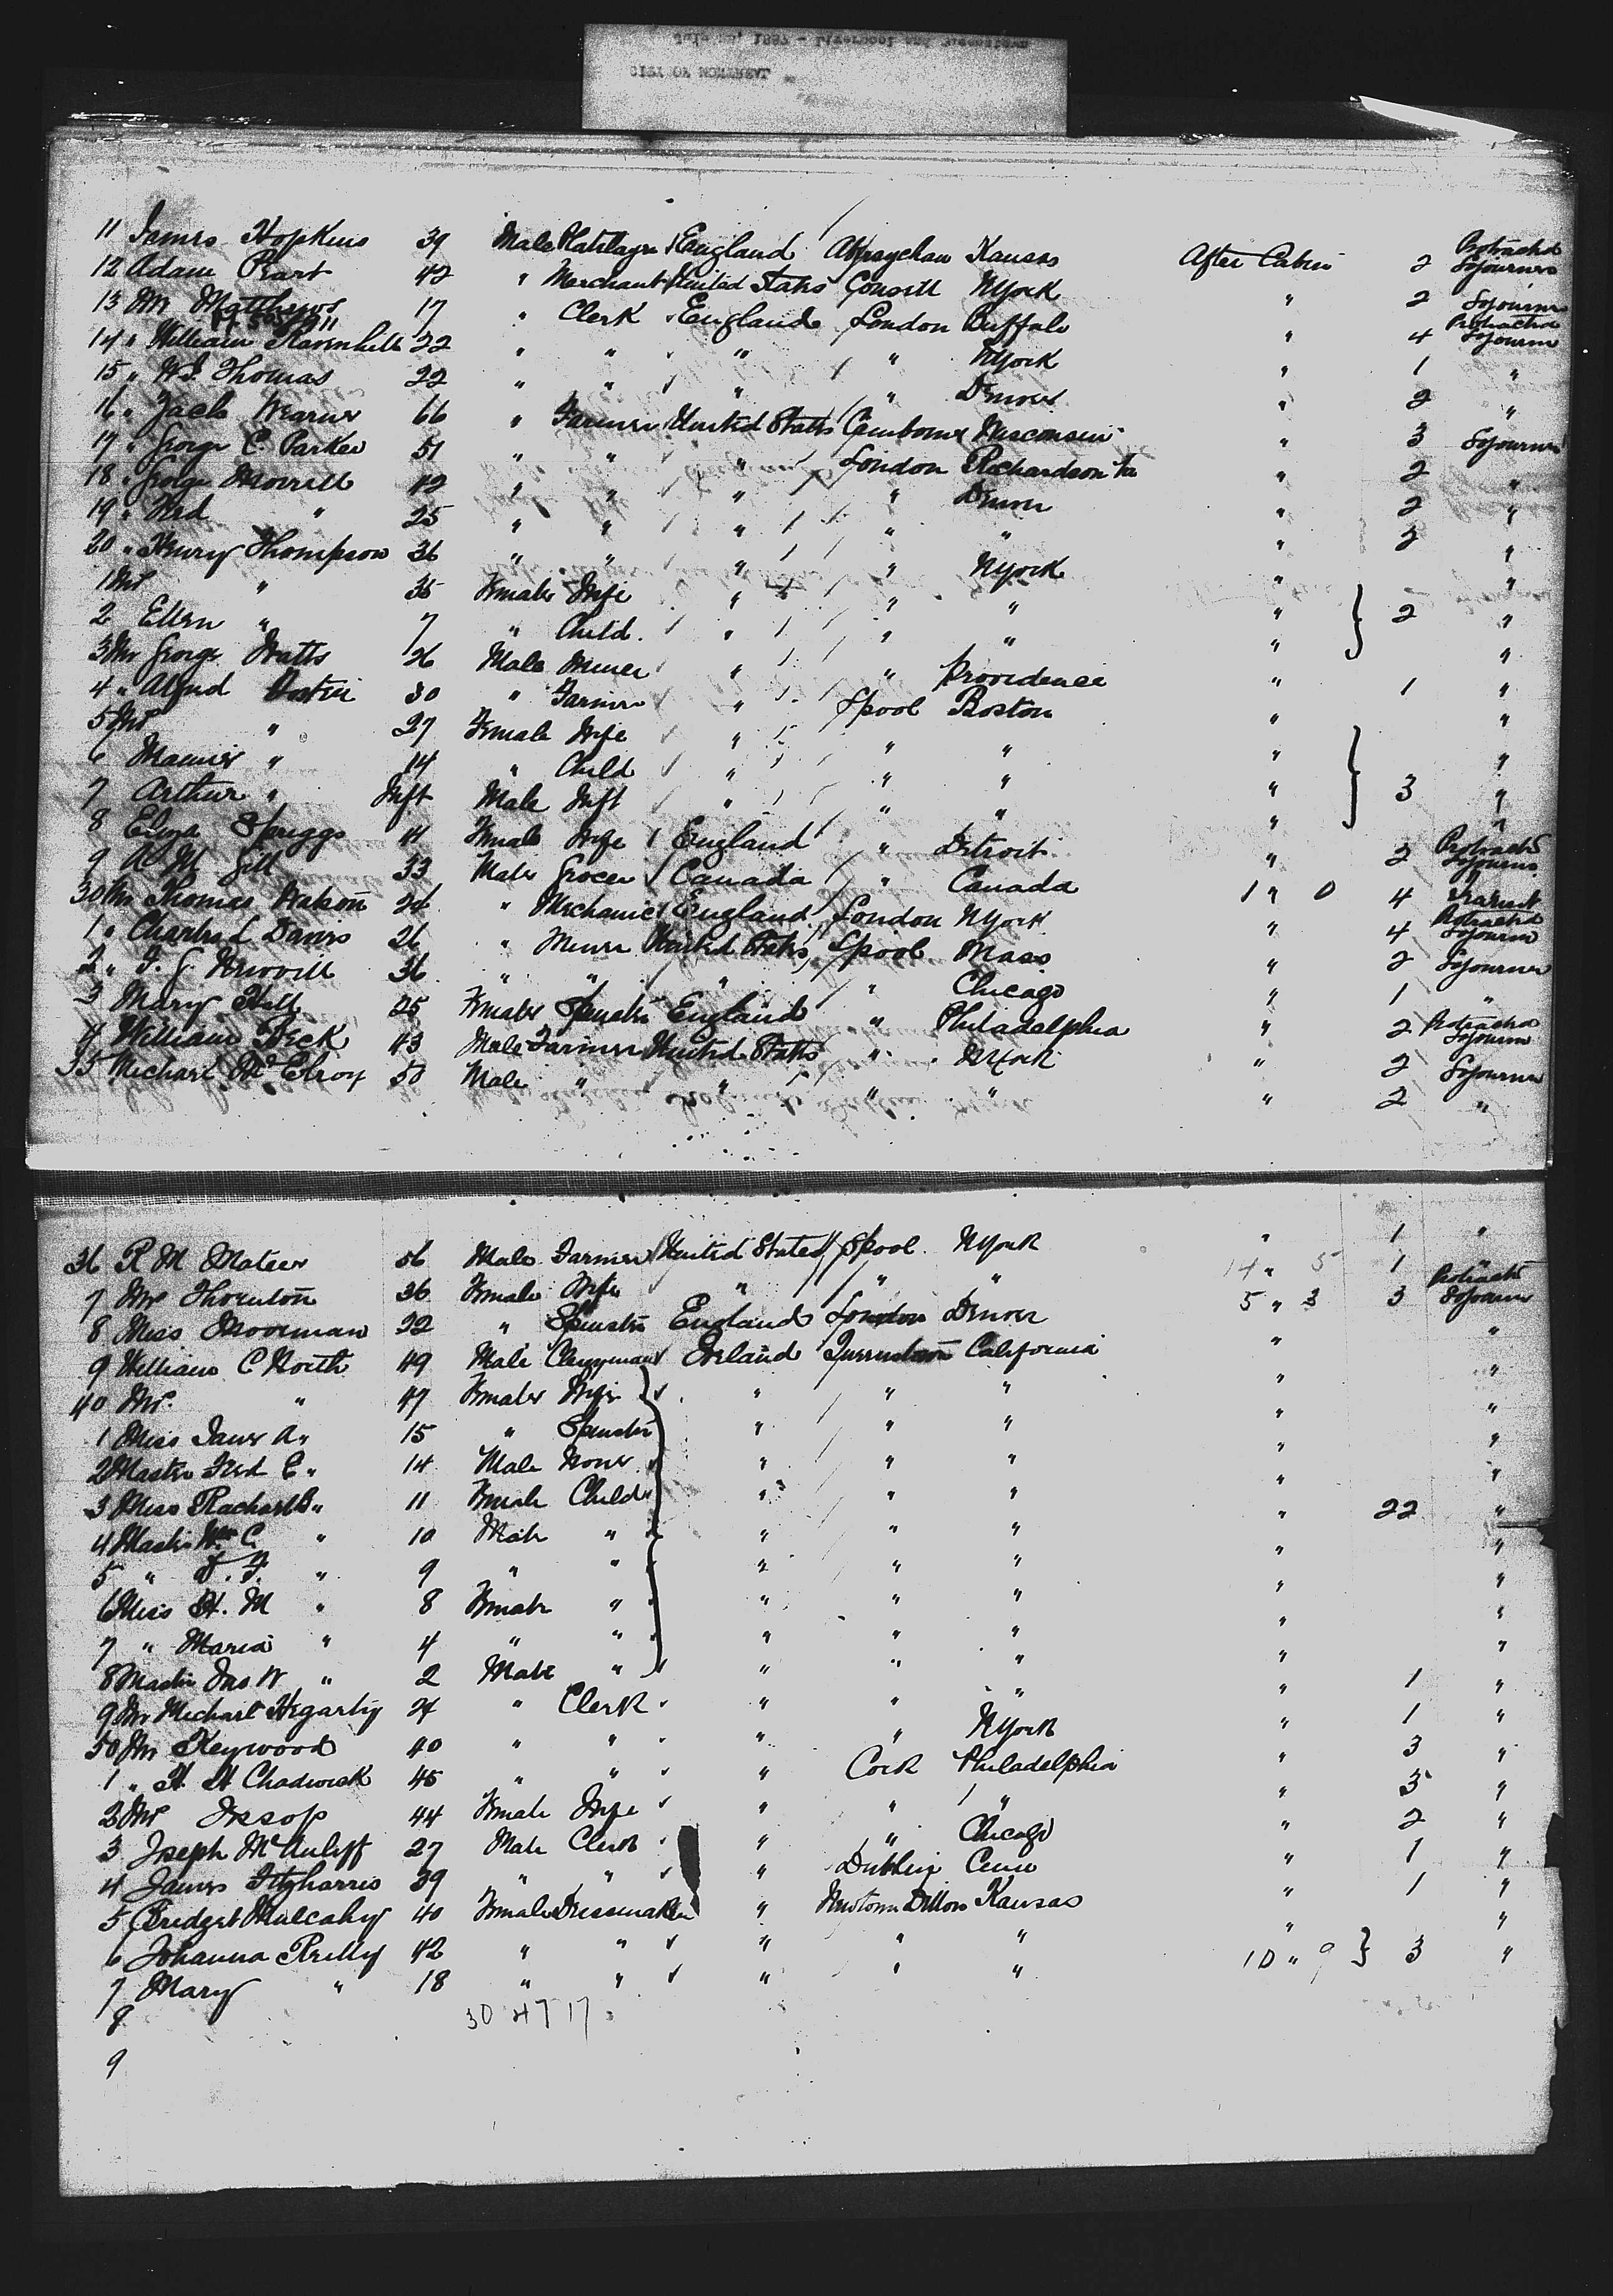 July , 1887 - Liverpool and Queenstown
CITY OF MONTREAL
11 James Hopkins 39 Male Platelayer England Abersychan Kansas After Cabin 2 Protracted Sojourner
12 Adam Peart 42 " Merchant United States Consett NYork " 2 Sojourner
13 Mr Matthews 17 " Clerk England London Buffalo " 4 Protracted Sojourn
14 " William Ravenhill 22 " " " " NYork " 1 "
15 " W. J. Thomas 22 " " " " Denver " 2 "
16 " Jack Wearne 66 " Farmer United States Camborne Wisconsin " 3 Sojourner
17 " George C. Parker 51 " " " London Richardson " 2 "
18 " George Morrill 42 " " " " Denver " 2 "
19 " Fred " 25 " " " " " " 2 "
20 " Henry Thompson 36 " " " " NYork " "
1 Mrs " 35 Female Wife " " " " 2 "
2 Ellen " 7 " Child " " " " "
3 Mr George Watts 26 Male Miner " " Providence " 1 "
4 " Alfred 30 " Farmer " Lpool Boston " "
5 Mrs " 27 Female Wife " " " " "
6 " 14 " Child " " " " 3 "
7 Arthur " Inft Male Inft " " " " "
8 Eliza Spriggs 41 Female Wife England " Detroit " 2 Protracted Sojourn
9 A M Gill 33 Male Grocer Canada " Canada 1 " 0 4 Transit
30 Mr Thomas Watson 24 " Mechanic England London NYork " 4 Protracted Sojourn
1 " Charles L Davis 26 " Miner United States Lpool Mass " 2 Sojourner
2 " 36 " " " " Chicago " 1 "
3 Mary Hill 25 Female Spinster England " Philadelphia " 2 Protracted Sojourn
4 William Beck 43 Male Farmer United States " NYork " 2 Sojourner
35 Michael McElroy 50 Male " " " " " 2 "
36 R M Mateer 56 Male Farmer United States Lpool NYork " 1 "
7 Mrs Thornton 36 Female Wife " " " 14 " 5 1 "
8 Miss Moorman 32 " Spinster England London Denver 5 " 3 3 Protracted Sojourn
9 William C North 49 Male Clergyman Ireland Queenstown California " "
40 Mrs " 47 Female Wife " " " " "
1 Miss Jane A " 15 " Spinster " " " " "
2 Master Fred E " 14 Male None " " " " "
3 Miss Rachael B " 11 Female Child " " " " 22 "
4 Master Wm C. " 10 Male " " " " " "
5 " " 9 " " " " " " "
6 Miss H. M " 8 Female " " " " " "
7 " Maria " 4 " " " " " " "
8 Master Jno W " 2 Male " " " " " "
9 Mr Michael Hegarty 24 " Clerk " " " " 1 "
50 Mr Keywood 40 " " " " NYork " 1 "
1 " H H Chadwick 45 " " " Cork Philadelphia " 3 "
2 Mrs Jessop 44 Female Wife " " " " 3 "
3 Joseph McAuliff 27 Male Clerk " " Chicago " 2 "
4 James Fitzharris 39 " " " Dublin " 1 "
5 Bridget Mulcahy 40 Female Dressmaker " Newtown Dillon Kansas " 1 "
6 Johanna Reilly 42 " " " " " " "
7 Mary " 18 " " " " " 10 " 9 3 "
8 30 47 17
9